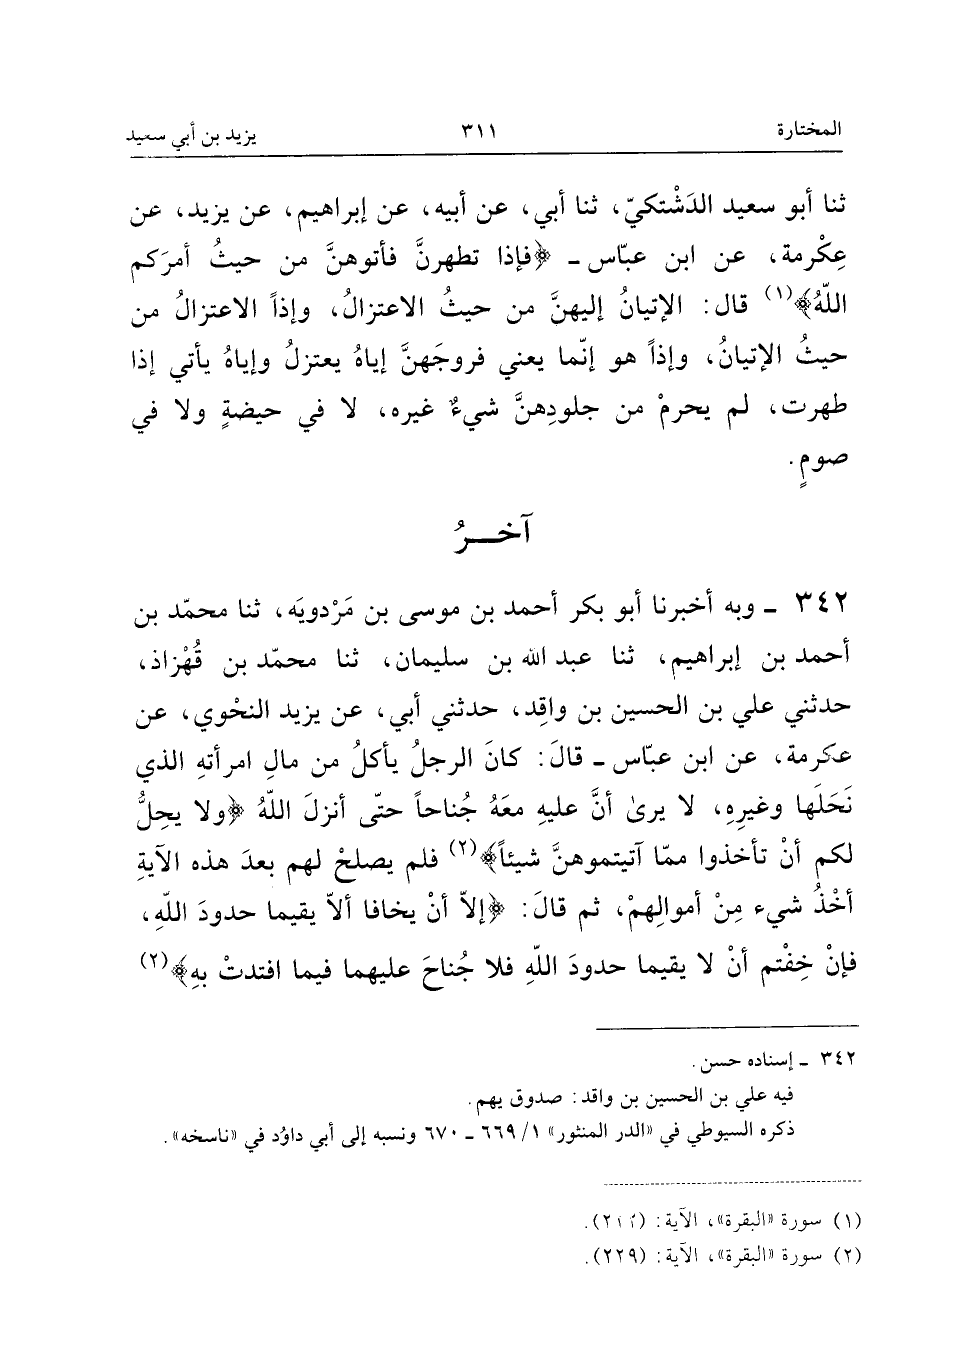 المختارة ٣١١ يزيد بن أبي سعيد
ثنا أبو سعيد الدَشْتكيّ، ثنا أبي، عن أبيه، عن إبراهيم، عن يزيد، عن
عِكْرمة، عن ابن عبّاس ـ ﴿فإذا تطهرنَّ فأتوهنَّ من حيثُ أمرَكم
اللّهُ﴾(١) قال: الإتيانُ إليهنَّ من حيثُ الاعتزالُ، وإذاً الاعتزالُ من
حيثُ الإتيانُ، وإذاً هو إنّما يعني فروجَهنَّ إياهُ يعتزلُ وإياهُ يأتي إذا
طهرت، لم يحرمْ من جلودِهنَّ شيءٌ غيره، لا في حيضةٍ ولا في
صومٍ.
آخـــرُ
٣٤٢ ـ وبه أخبرنا أبو بكر أحمد بن موسى بن مَرْدويَه، ثنا محمّد بن
أحمد بن إبراهيم، ثنا عبد الله بن سليمان، ثنا محمّد بن قُهْزاذ،
حدثني علي بن الحسين بن واقِد، حدثني أبي، عن يزيد النحْوي، عن
عكرمة، عن ابن عبّاس ـ قالَ: كانَ الرجلُ يأكلُ من مالِ امرأتهِ الذي
نَحَلَها وغيرِهِ، لا يرىٰ أنَّ عليهِ معَهُ جُناحاً حتّى أنزلَ اللّهُ ﴿ولا يحِلُّ
لكم أنْ تأخذوا ممّا آتيتموهنَّ شيئاً﴾(٢) فلم يصلحْ لهم بعدَ هذه الآيةِ
أخْذُ شيء مِنْ أموالِهِمْ، ثم قالَ: ﴿إلاّ أنْ يخافا ألاّ يقيما حدودَ اللّهِ،
فإنْ خِفْتم أنْ لا يقيما حدودَ اللّهِ فلا جُناحَ عليهما فيما افتدتْ بهِ﴾(٢)
٣٤٢ ـ إسناده حسن.
فيه علي بن الحسين بن واقد: صدوق يهم.
ذكره السيوطي في «الدر المنثور» ١/ ٦٦٩ ـ ٦٧٠ ونسبه إلى أبي داوُد في «ناسخه».
(١) سورة «البقرة»، الآية:
(٢) سورة «البقرة»، الآية: (٢٢٩).